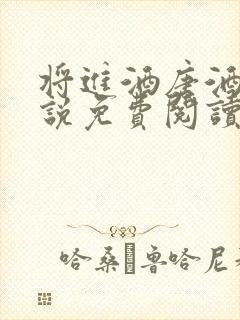 将進酒唐酒
說免費閱讀
哈桑·鲁哈尼